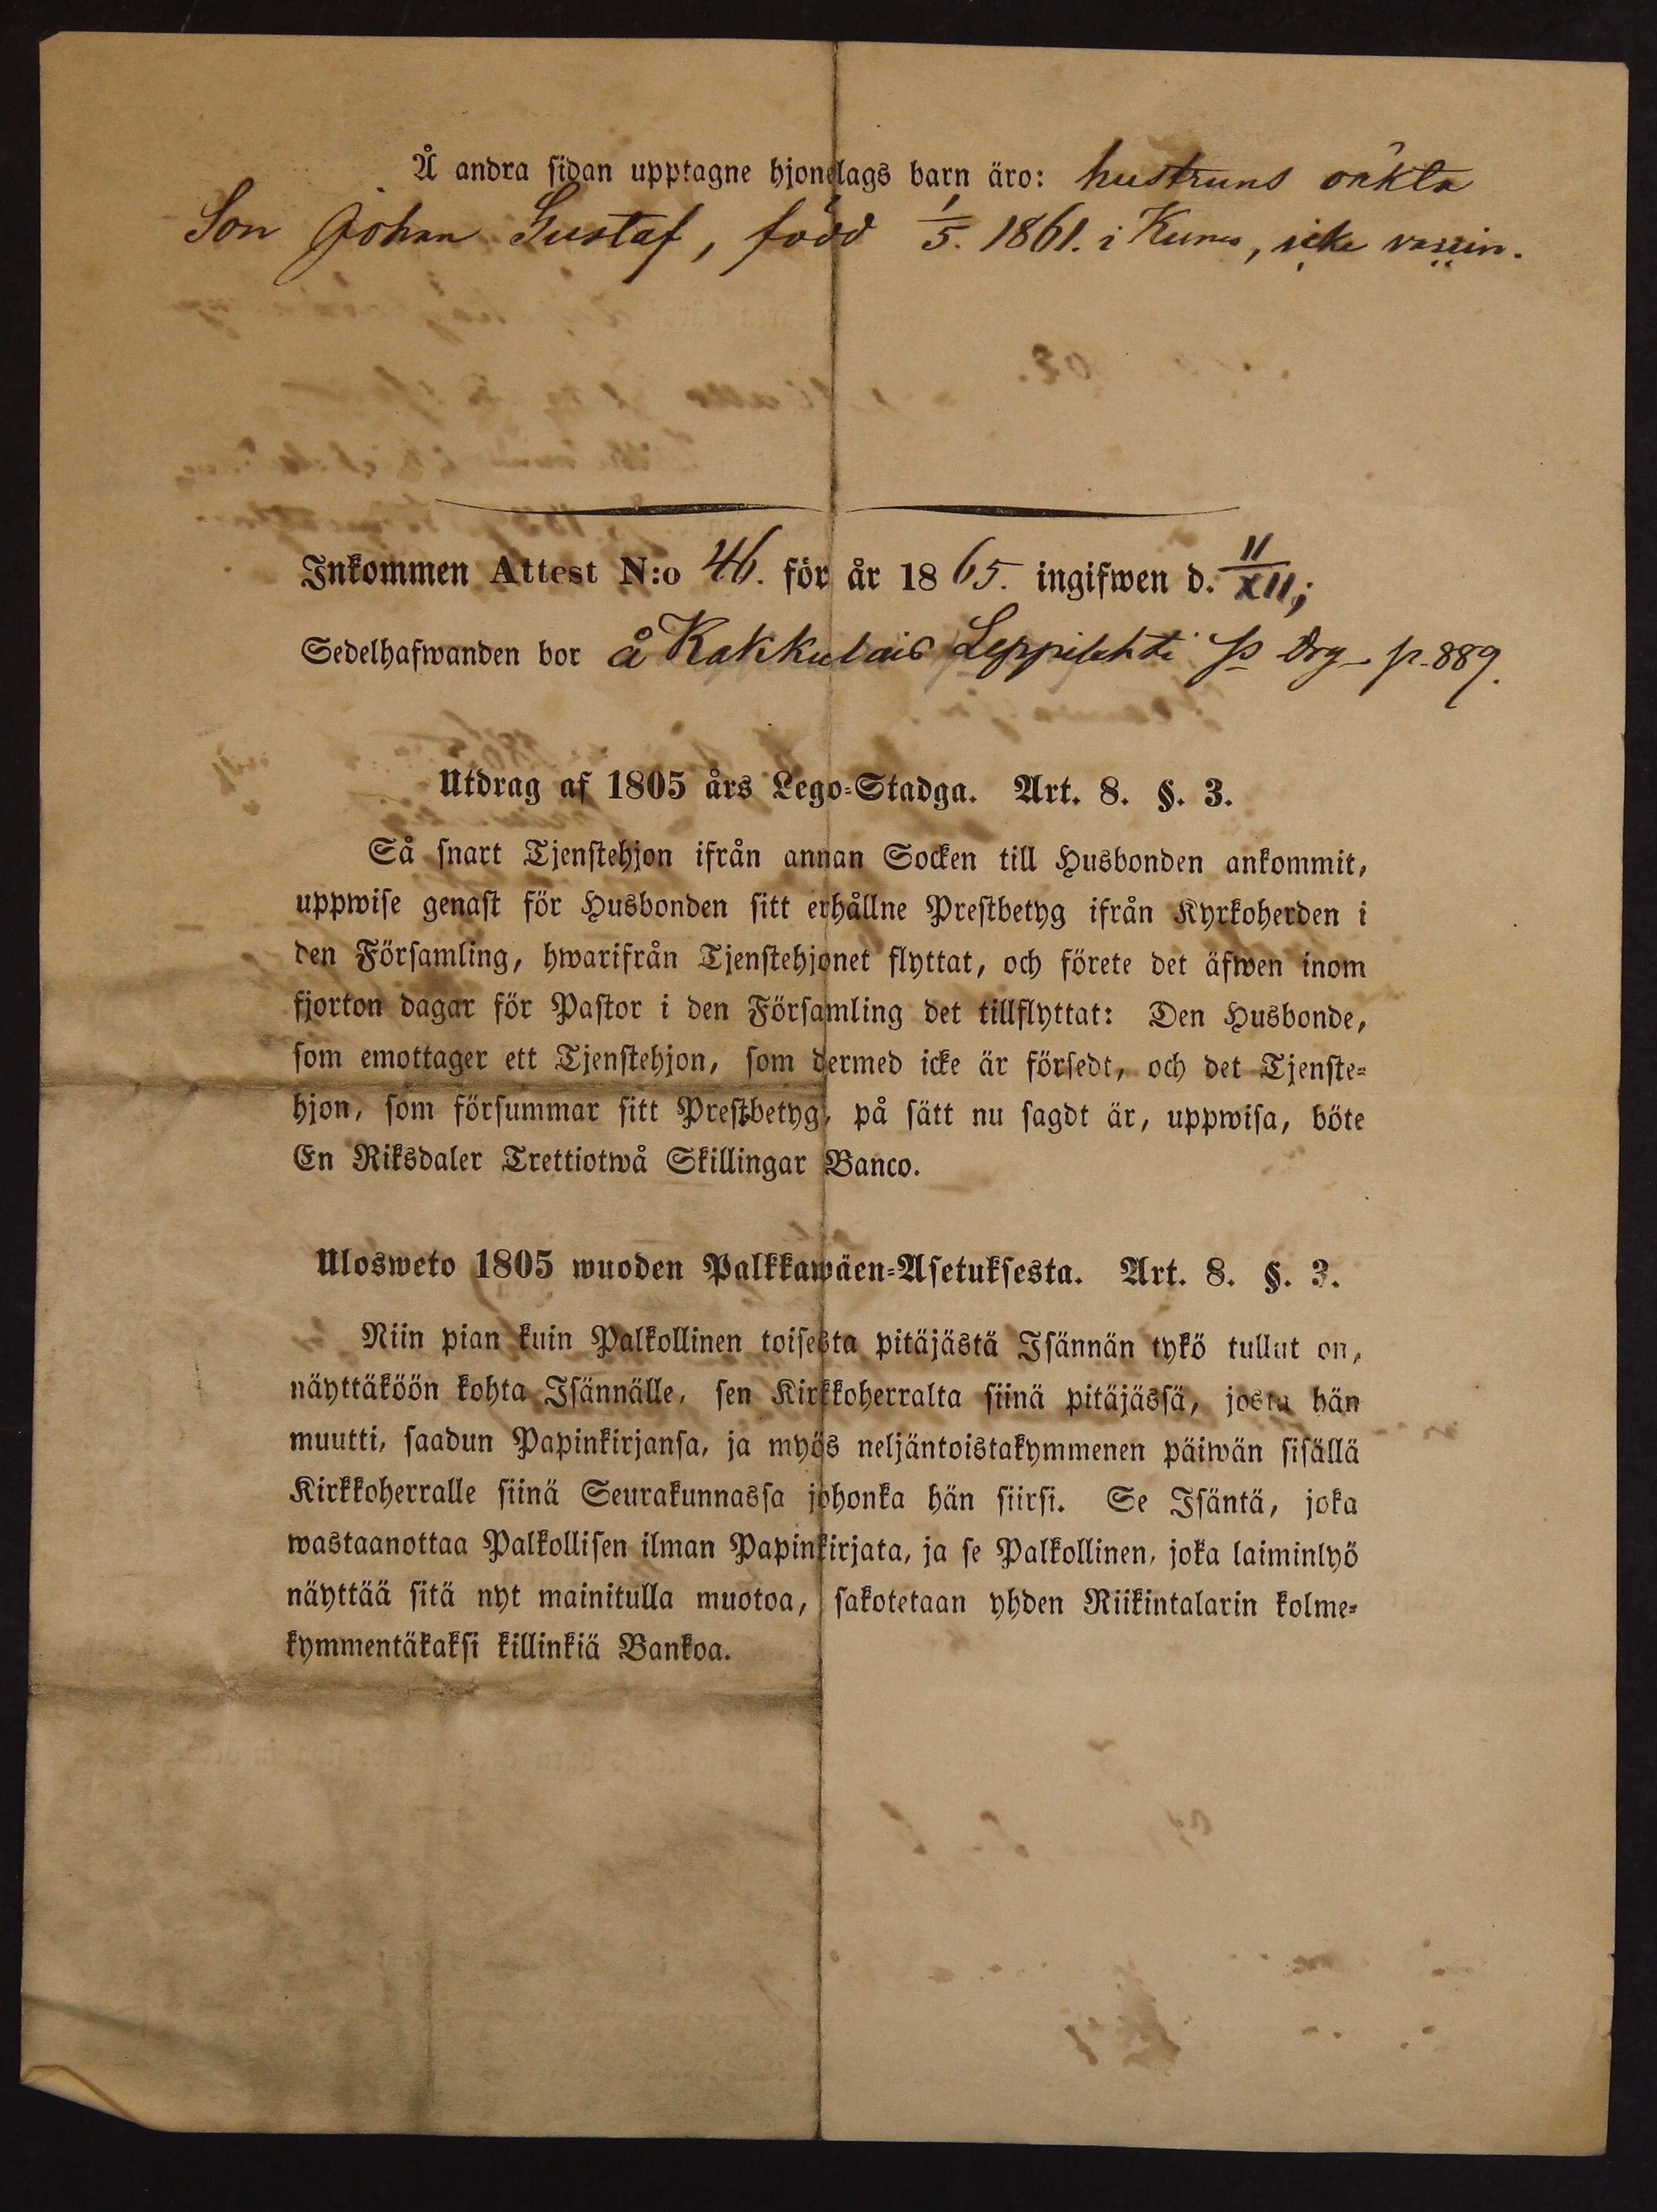 Å andra sidan upptagne hjonelags barn äro: hustruns oäkta
Son Johan Gustaf, född 1/5. 1861. i Kumo, icke vaccin.
Inkommen Attest N:o 46. för år 1865. ingifwen d. 11/XII;
Sedelhafwanden bor å Kakkulais Leppilehti p. 889.
Utdrag af 1805 års Lego-Stadga. Art. 8. §. 3.
Så snart Tjenstehjon ifrån annan Socken till Husbonden ankommit,
uppwise genast för Husbonden sitt erhållne Prestbetyg ifrån Kyrkoherden i
den Församling, hwarifrån Tjenstehjonet flyttat, och förete det äfwen inom
fjorton dagar för Pastor i den Församling det tillflyttat: Den Husbonde,
som emottager ett Tjenstehjon, som dermed icke är försedt, och det Tjenste-
hjon, som försummar sitt Prestbetyg, på sätt nu sagdt är, uppwisa, böte
En Riksdaler Trettiotwå Skillingar Banco.
Ulosweto 1805 wuoden Palkkawäen-Asetuksesta. Art. 8. §. 3.
Niin pian kuin Palkollinen toisesta pitäjästä Isännän tykö tullut on,
näyttäköön kohta Isännälle, sen Kirkkoherralta siinä pitäjässä, josta hän
muutti, saadun Papinkirjansa, ja myös neljäntoistakymmenen päiwän sisällä
Kirkkoherralle siinä Seurakunnassa johonka hän siirsi. Se Isäntä, joka
wastaanottaa Palkollisen ilman Papinkirjata, ja se Palkollinen, joka laiminlyö
näyttää sitä nyt mainitulla muotoa, sakotetaan yhden Riikintalarin kolme-
kymmentäkaksi killinkiä Bankoa.